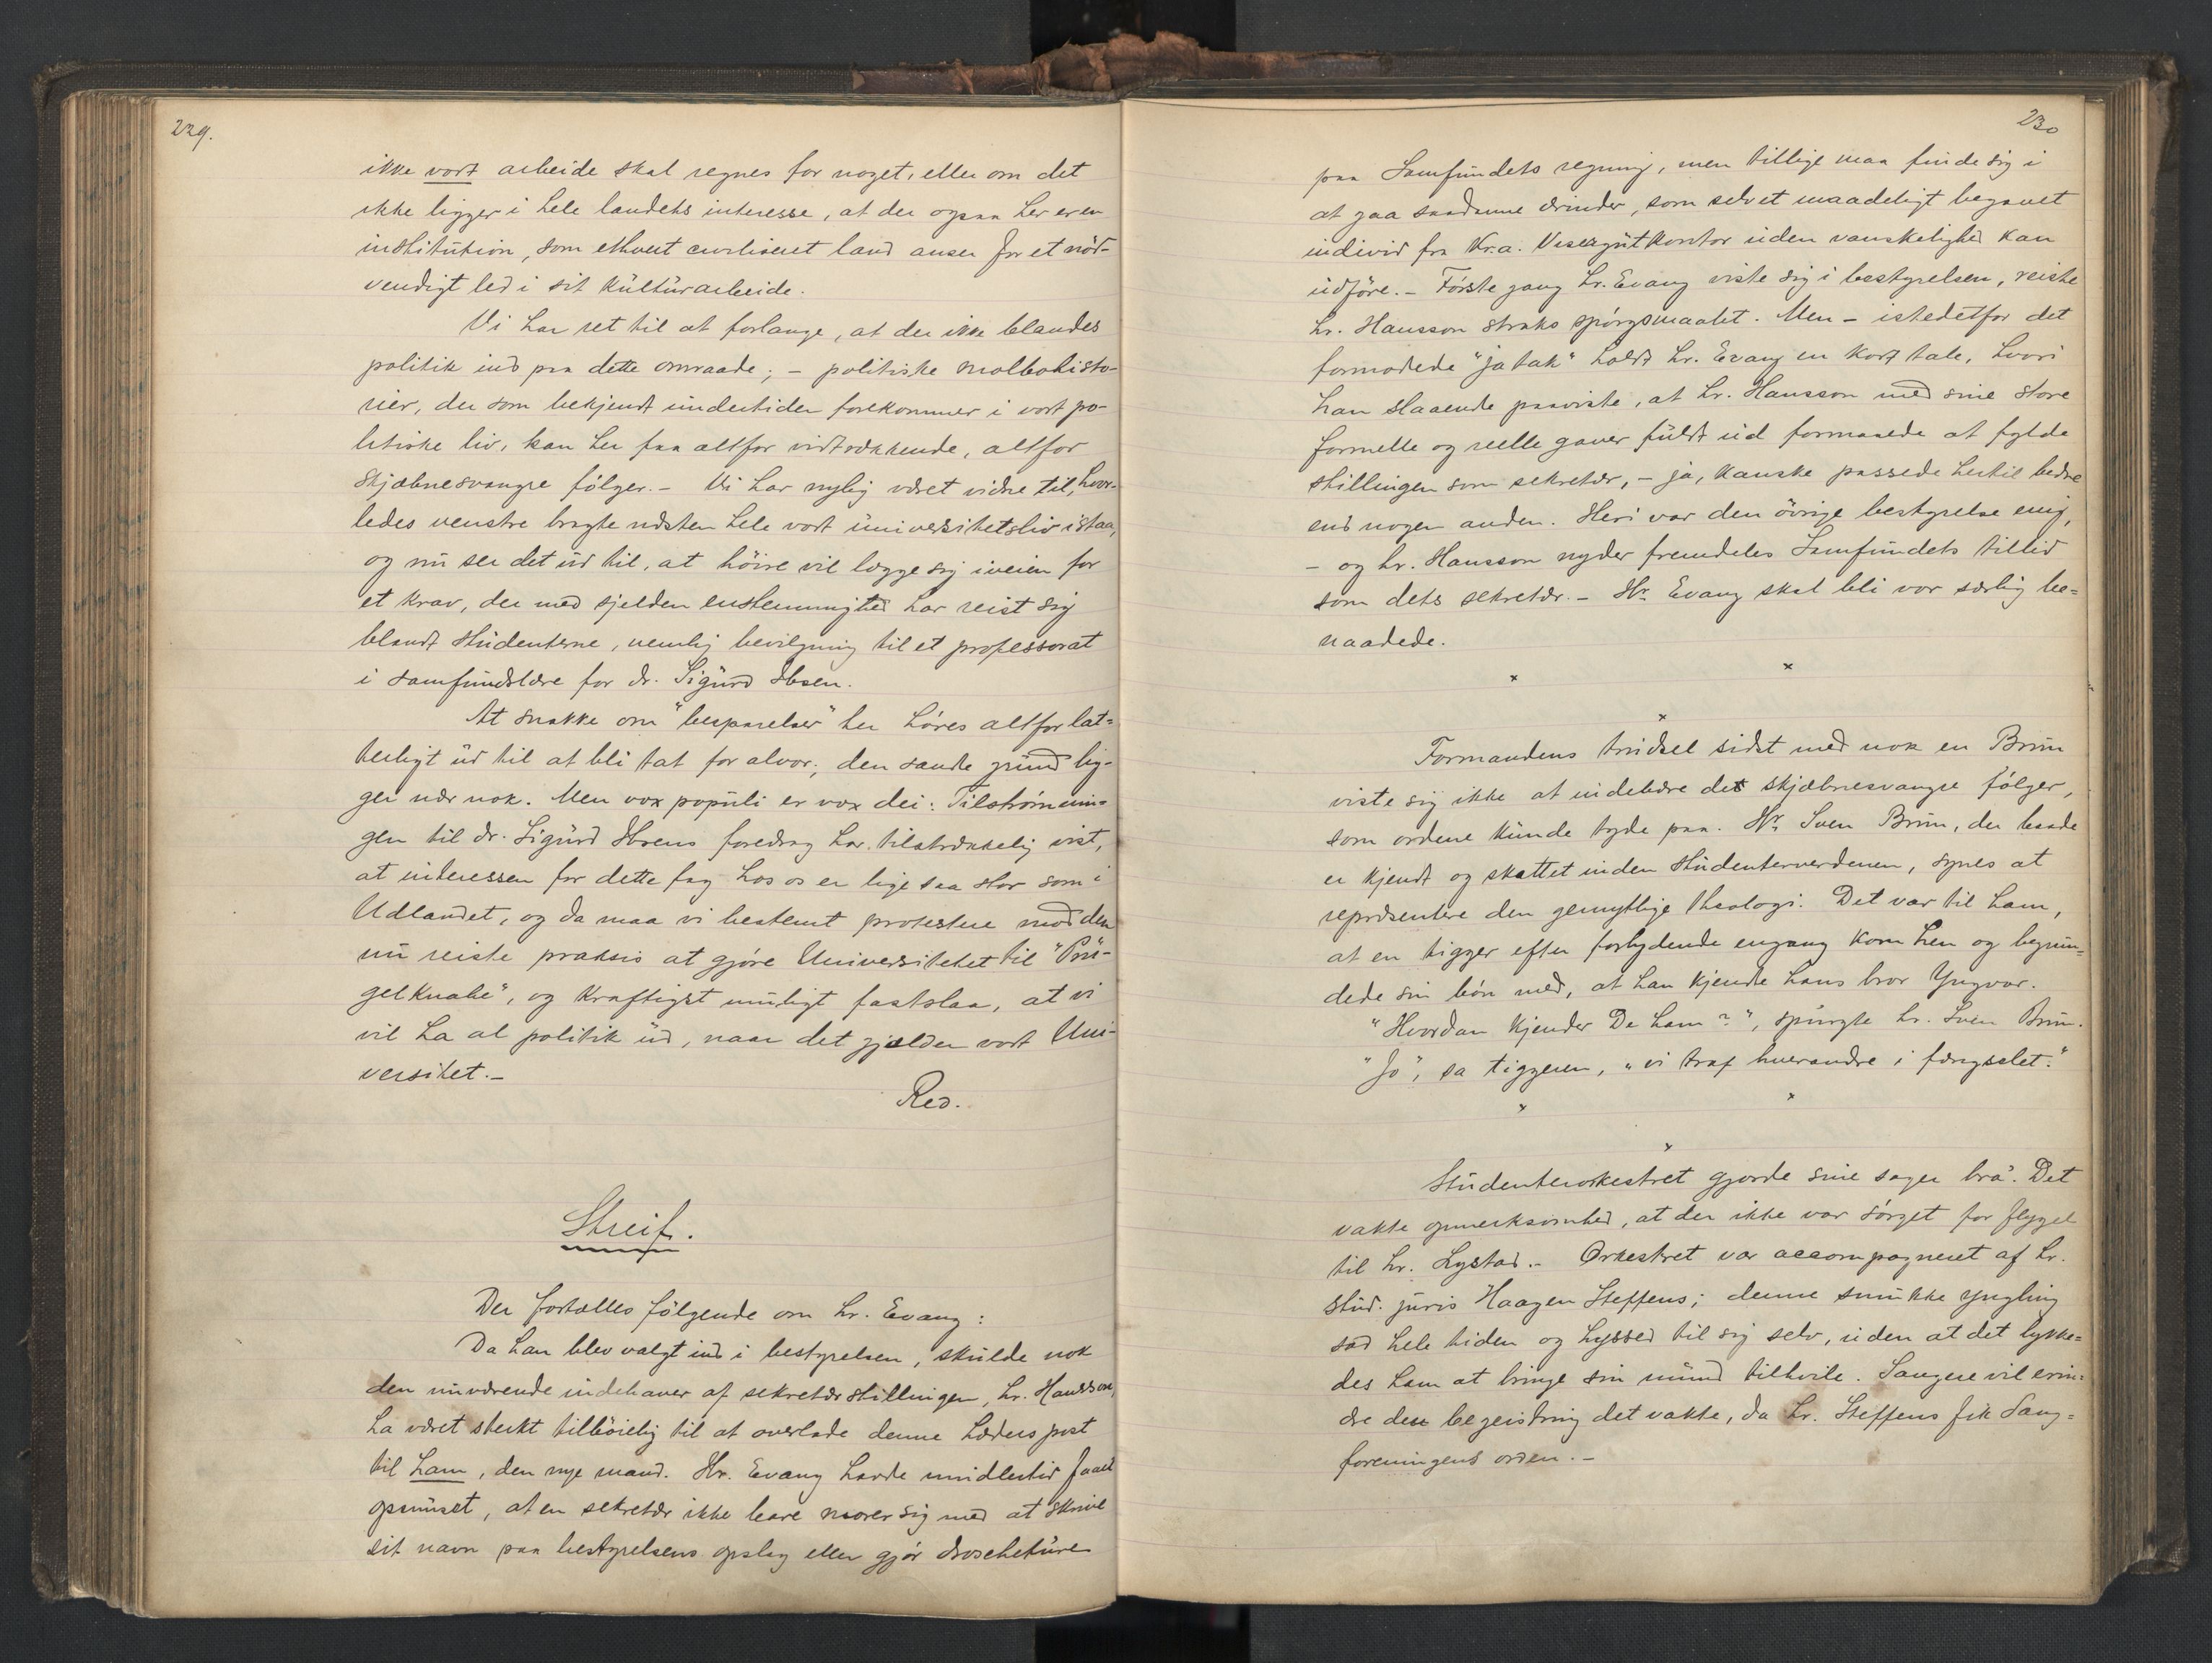 229.
ikke vort arbeide skal regnes for noget, eller om det
ikke ligger i hele landets interesse, at der ogsaa her er en
institution, som ethvert civiliseret land anser for et nød-
vendigt led i sit kulturarbeide.
Vi har ret til at forlange, at der ikke blandes
politik ind paa dette omraade; – politiske molbohisto-
rier, der som bekjendt undertiden forekommer i vort po-
litiske liv, kan her faa altfor vidtrækkende, altfor
skjæbnesvangre følger. – Vi har nylig været vidne til, hvor-
ledes venstre bragte næsten hele vort universitetsliv istaa,
og nu ser det ud til, at høire vil lægge sig iveien for
et krav, der med sjelden enstemmighed har reist sig
blandt studenterne, nemlig bevilgning til et professorat
i samfundslære for dr. Sigurd Ibsen.
At snakke om "besparelser" her høres altfor lat-
terligt ud til at bli tat for alvor; den sande grund lig-
ger nær nok. Men vox populi er vox dei: Tilstrømnin-
gen til dr. Sigurd Ibsens foredrag har tilstrækkelig vist,
at interessen for dette fag hos os er lige saa stor som i
Udlandet, og da maa vi bestemt protestere mod den
nu reiste praksis at gjøre Universitetet til "Prü-
gelknabe", og kraftigst muligt fastslaa, at vi
vil ha al politik ud, naar det gjælder vort Uni-
versitet. –
Red.
Streif.
Der fortælles følgende om hr. Evang:
Da han blev valgt ind i bestyrelsen, skulde nok
den nuværende indehaver af sekretærstillingen, hr. Hansson,
ha været sterkt tilbøielig til at overlade denne hæderspost
til ham, den nye mand. Hr. Evang havde imidlertid faaet
opsnuset, at en sekretær ikke bare morer sig med at skrive
sit navn paa bestyrelsens opslag eller gjør droscheture
230
paa Samfundets regning, men tillige maa finde sig i
at gaa saadanne ærinder, som selv et maadeligt begavet
individ fra Kr.a. Visergutkontor uden vanskelighed kan
udføre. – Første gang hr. Evang viste sig i bestyrelsen, reiste
hr. Hansson straks spørgsmaalet. Men – istedetfor det
formodede "ja tak" holdt hr. Evang en kort tale, hvori
han slaaende paaviste, at hr. Hansson med sine store
formelle og reelle gaver fuldt ud formaaede at fylde
stillingen som sekretær, – ja, kanske passede hertil bedre
end nogen anden. Heri var den øvrige bestyrelse enig,
– og hr. Hansson nyder fremdeles Samfundets tillid
som dets sekretær. – Hr. Evang skal bli vor særlig be-
naadede.
x x
x
Formandens trudsel sidst med nok en Brun
viste sig ikke at indebære de skjæbnesvangre følger,
som ordene kunde tyde paa. Hr. Sven Brun, der baade
er kjendt og skattet inden studenterverdenen, synes at
repræsentere den gemytlige theologi. Det var til ham,
at en tigger efter forlydende engang kom hen og begrun-
dede sin bøn med, at han kjendte hans bror Yngvar.
"Hvordan kjender De ham?", spurgte hr. Sven Brun.
"Jo", sa tiggeren, "vi traf hverandre i fængselet."
x x
x
Studenterorkestret gjorde sine sager bra. Det
vakte opmerksomhed, at der ikke var sørget for flygel
til hr. Lystad. – Orkestret var accompagneret af hr.
stud. juris Haagen Steffens; denne smukke yngling
sad hele tiden og hyssed til sig selv, uden at det lykke-
des ham at bringe sin mund tilhvile. Sangere vil erin-
dre den begeistring det vakte, da hr. Steffens fik Sang-
foreningens orden. –